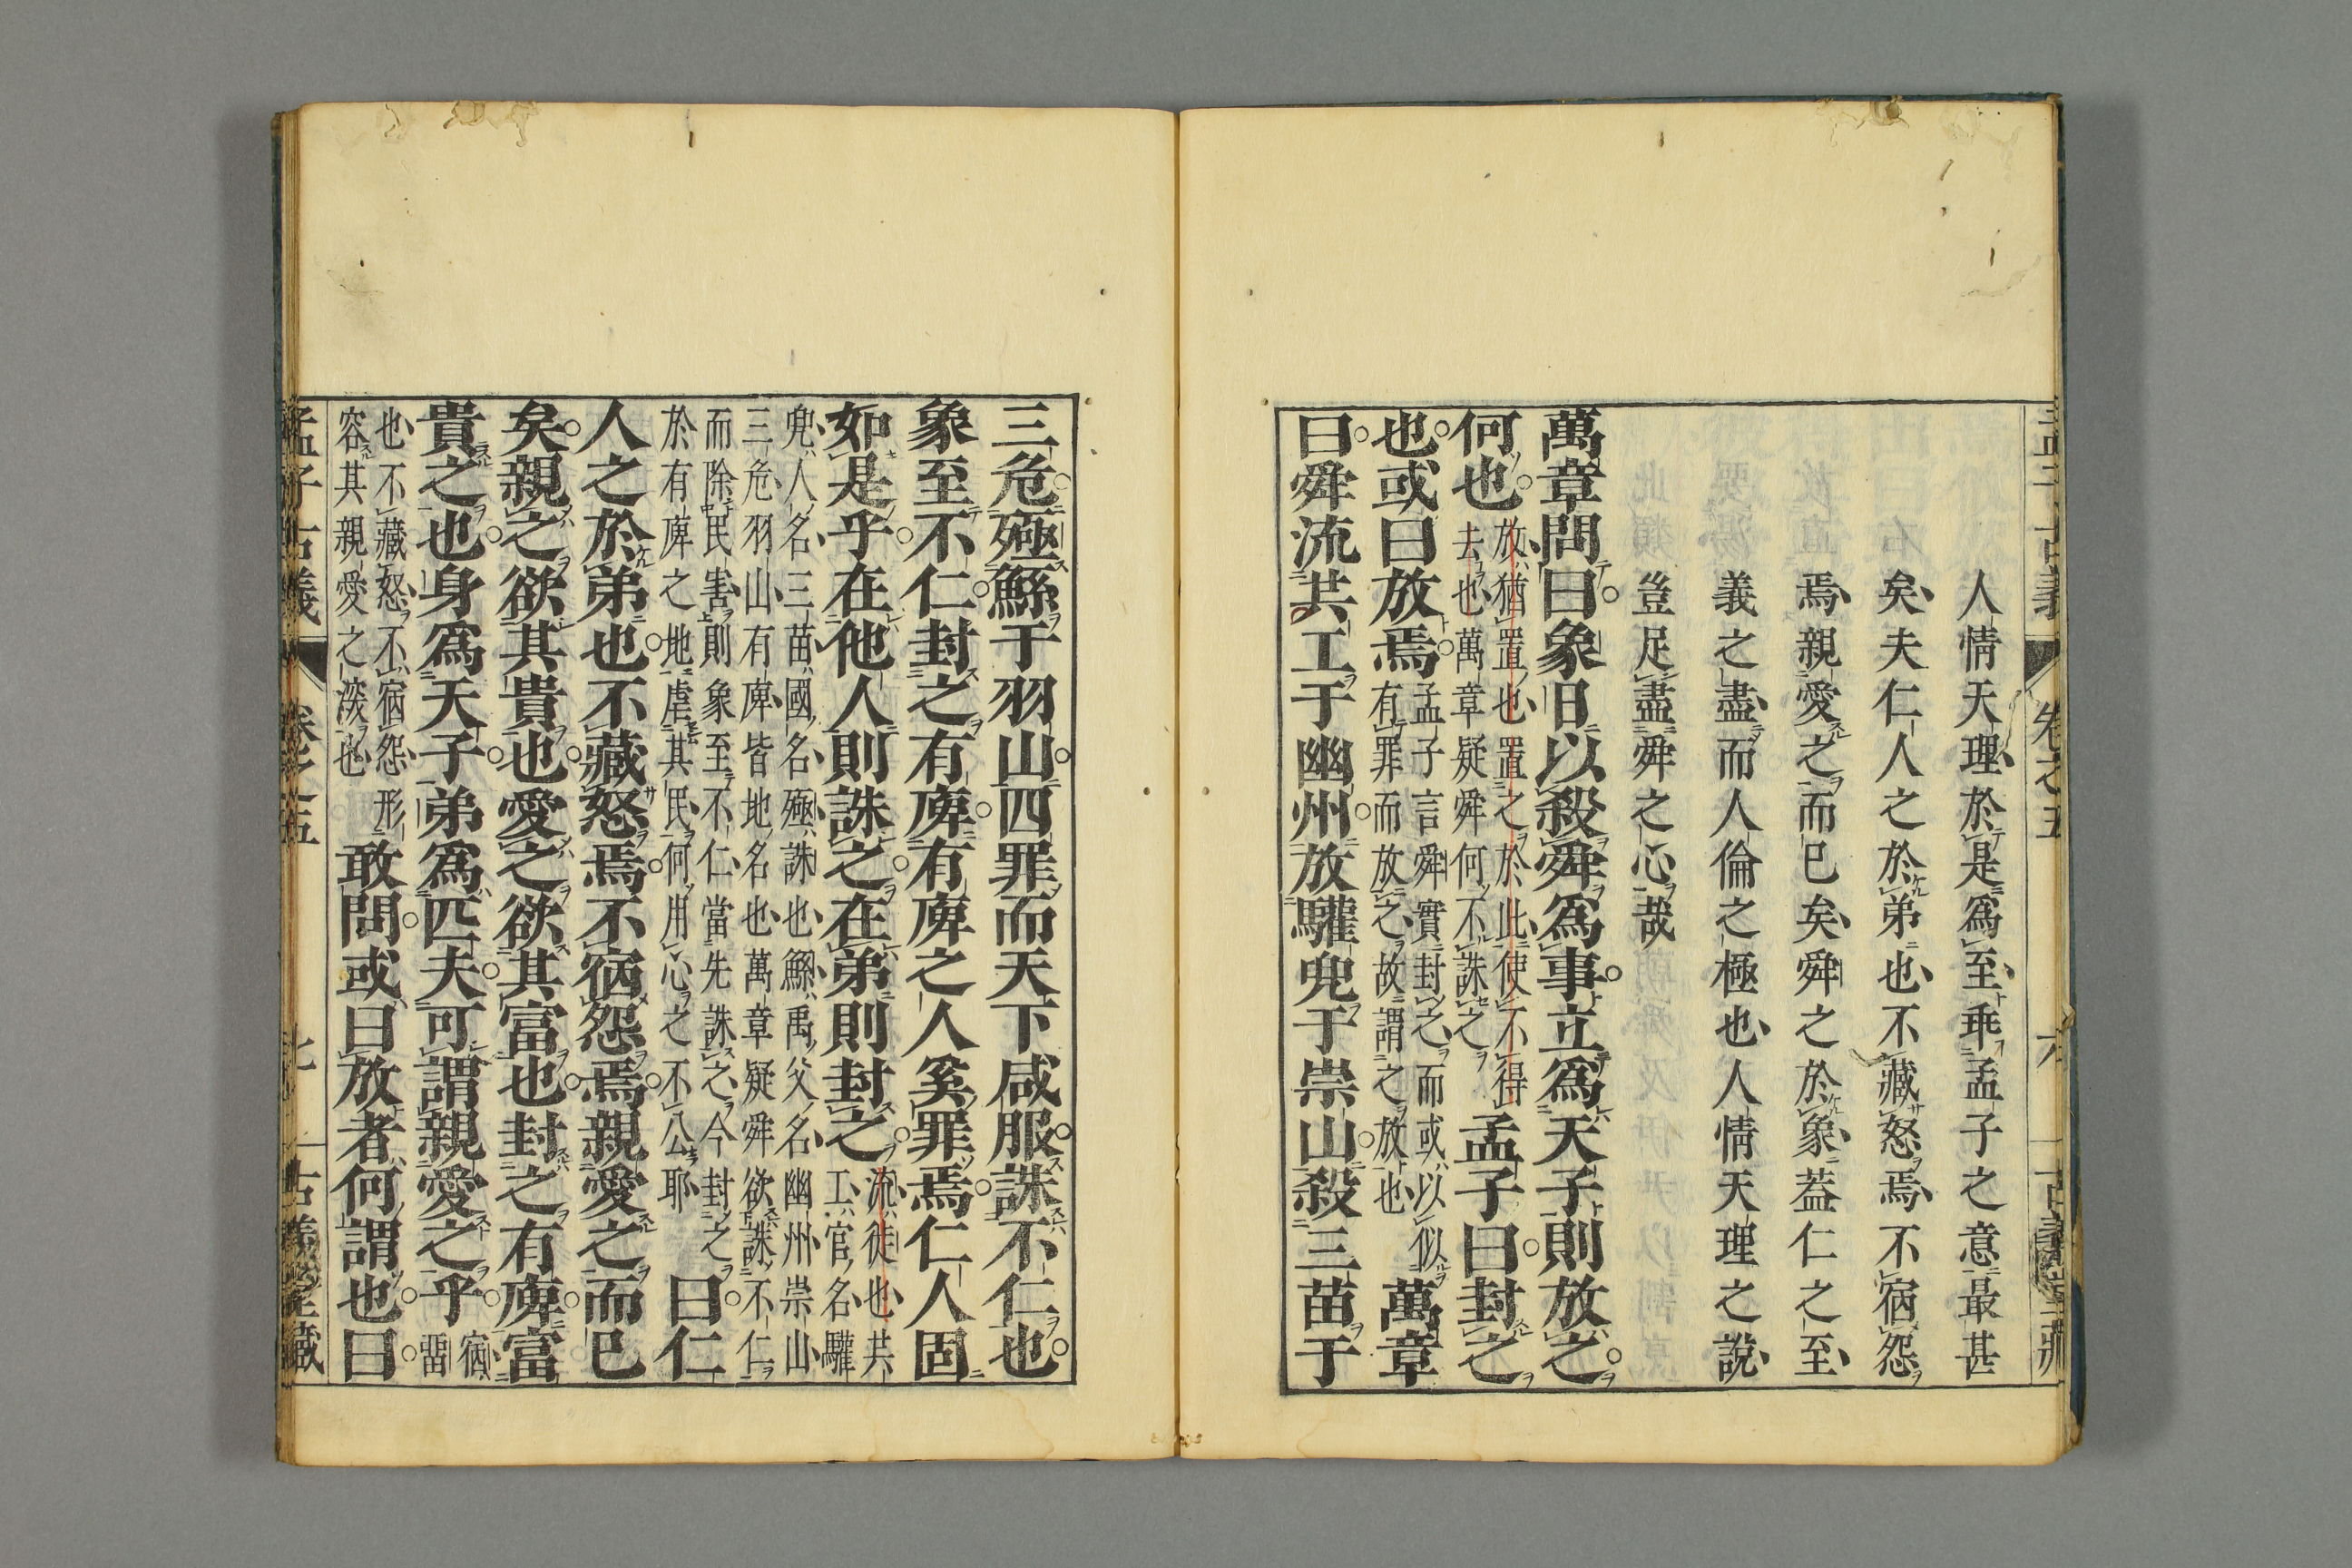 孟子古義 卷之五 六 古義堂藏
人情天理於是爲至乖孟子之意最甚
矣夫仁人之於弟也不藏怒焉不宿怨
焉親愛之而已矣舜之於象葢仁之至
義之盡而人倫之極也人情天理之說
豈足盡舜之心哉
萬章問曰象日以殺舜爲事立爲天子則放之
何也放猶置也置之於此使不得去也萬章疑舜何不誅之孟子曰封之
也或曰放焉孟子言舜實封之而或以似有罪而放之故謂之放也萬章
曰舜流共工于幽州放驩兜于崇山殺三苗于
三危殛鯀于羽山四罪而天下咸服誅不仁也
象至不仁封之有庳有庳之人奚罪焉仁人固
如是乎在他人則誅之在弟則封之流徙也共工官名驩
兜人名三苗國名殛誅也鯀禹父名幽州崇山
三危羽山有庳皆地名也萬章疑舜欲誅不仁
而除民害則象至不仁當先誅之今封之
於有庳之地虐其民何用心之不公耶曰仁
人之於弟也不藏怒焉不宿怨焉親愛之而已
矣親之欲其貴也愛之欲其富也封之有庳富
貴之也身爲天子弟爲匹夫可謂親愛之乎宿畱
也不藏怒不宿怨形容其親愛之深也敢問或曰放者何謂也曰
孟子古義 卷之五 七 古義堂藏